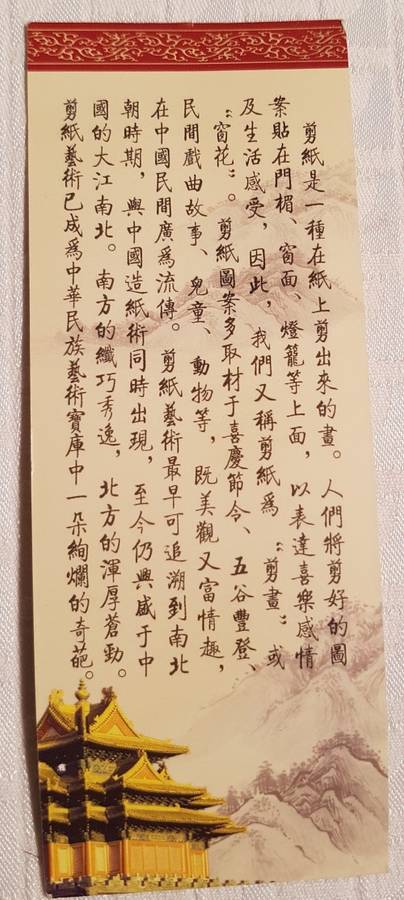 剪紙是一種在紙上剪出來的畫。人們將剪好的圖
案貼在門楣、窗面、燈籠等上面，以表達喜樂感情
及生活感受，因此，我們又稱剪紙爲“剪畫”或
“窗花”。剪紙圖案多取材于喜慶節令、五谷豐登、
民間戲曲故事、兒童、動物等，既美觀又富情趣，
在中國民間廣爲流傳。剪紙藝術最早可追溯到南北
朝時期，與中國造紙術同時出現，至今仍興盛于中
國的大江南北。南方的纖巧秀逸，北方的渾厚蒼勁。
剪紙藝術已成爲中華民族藝術寶庫中一朵絢爛的奇葩。